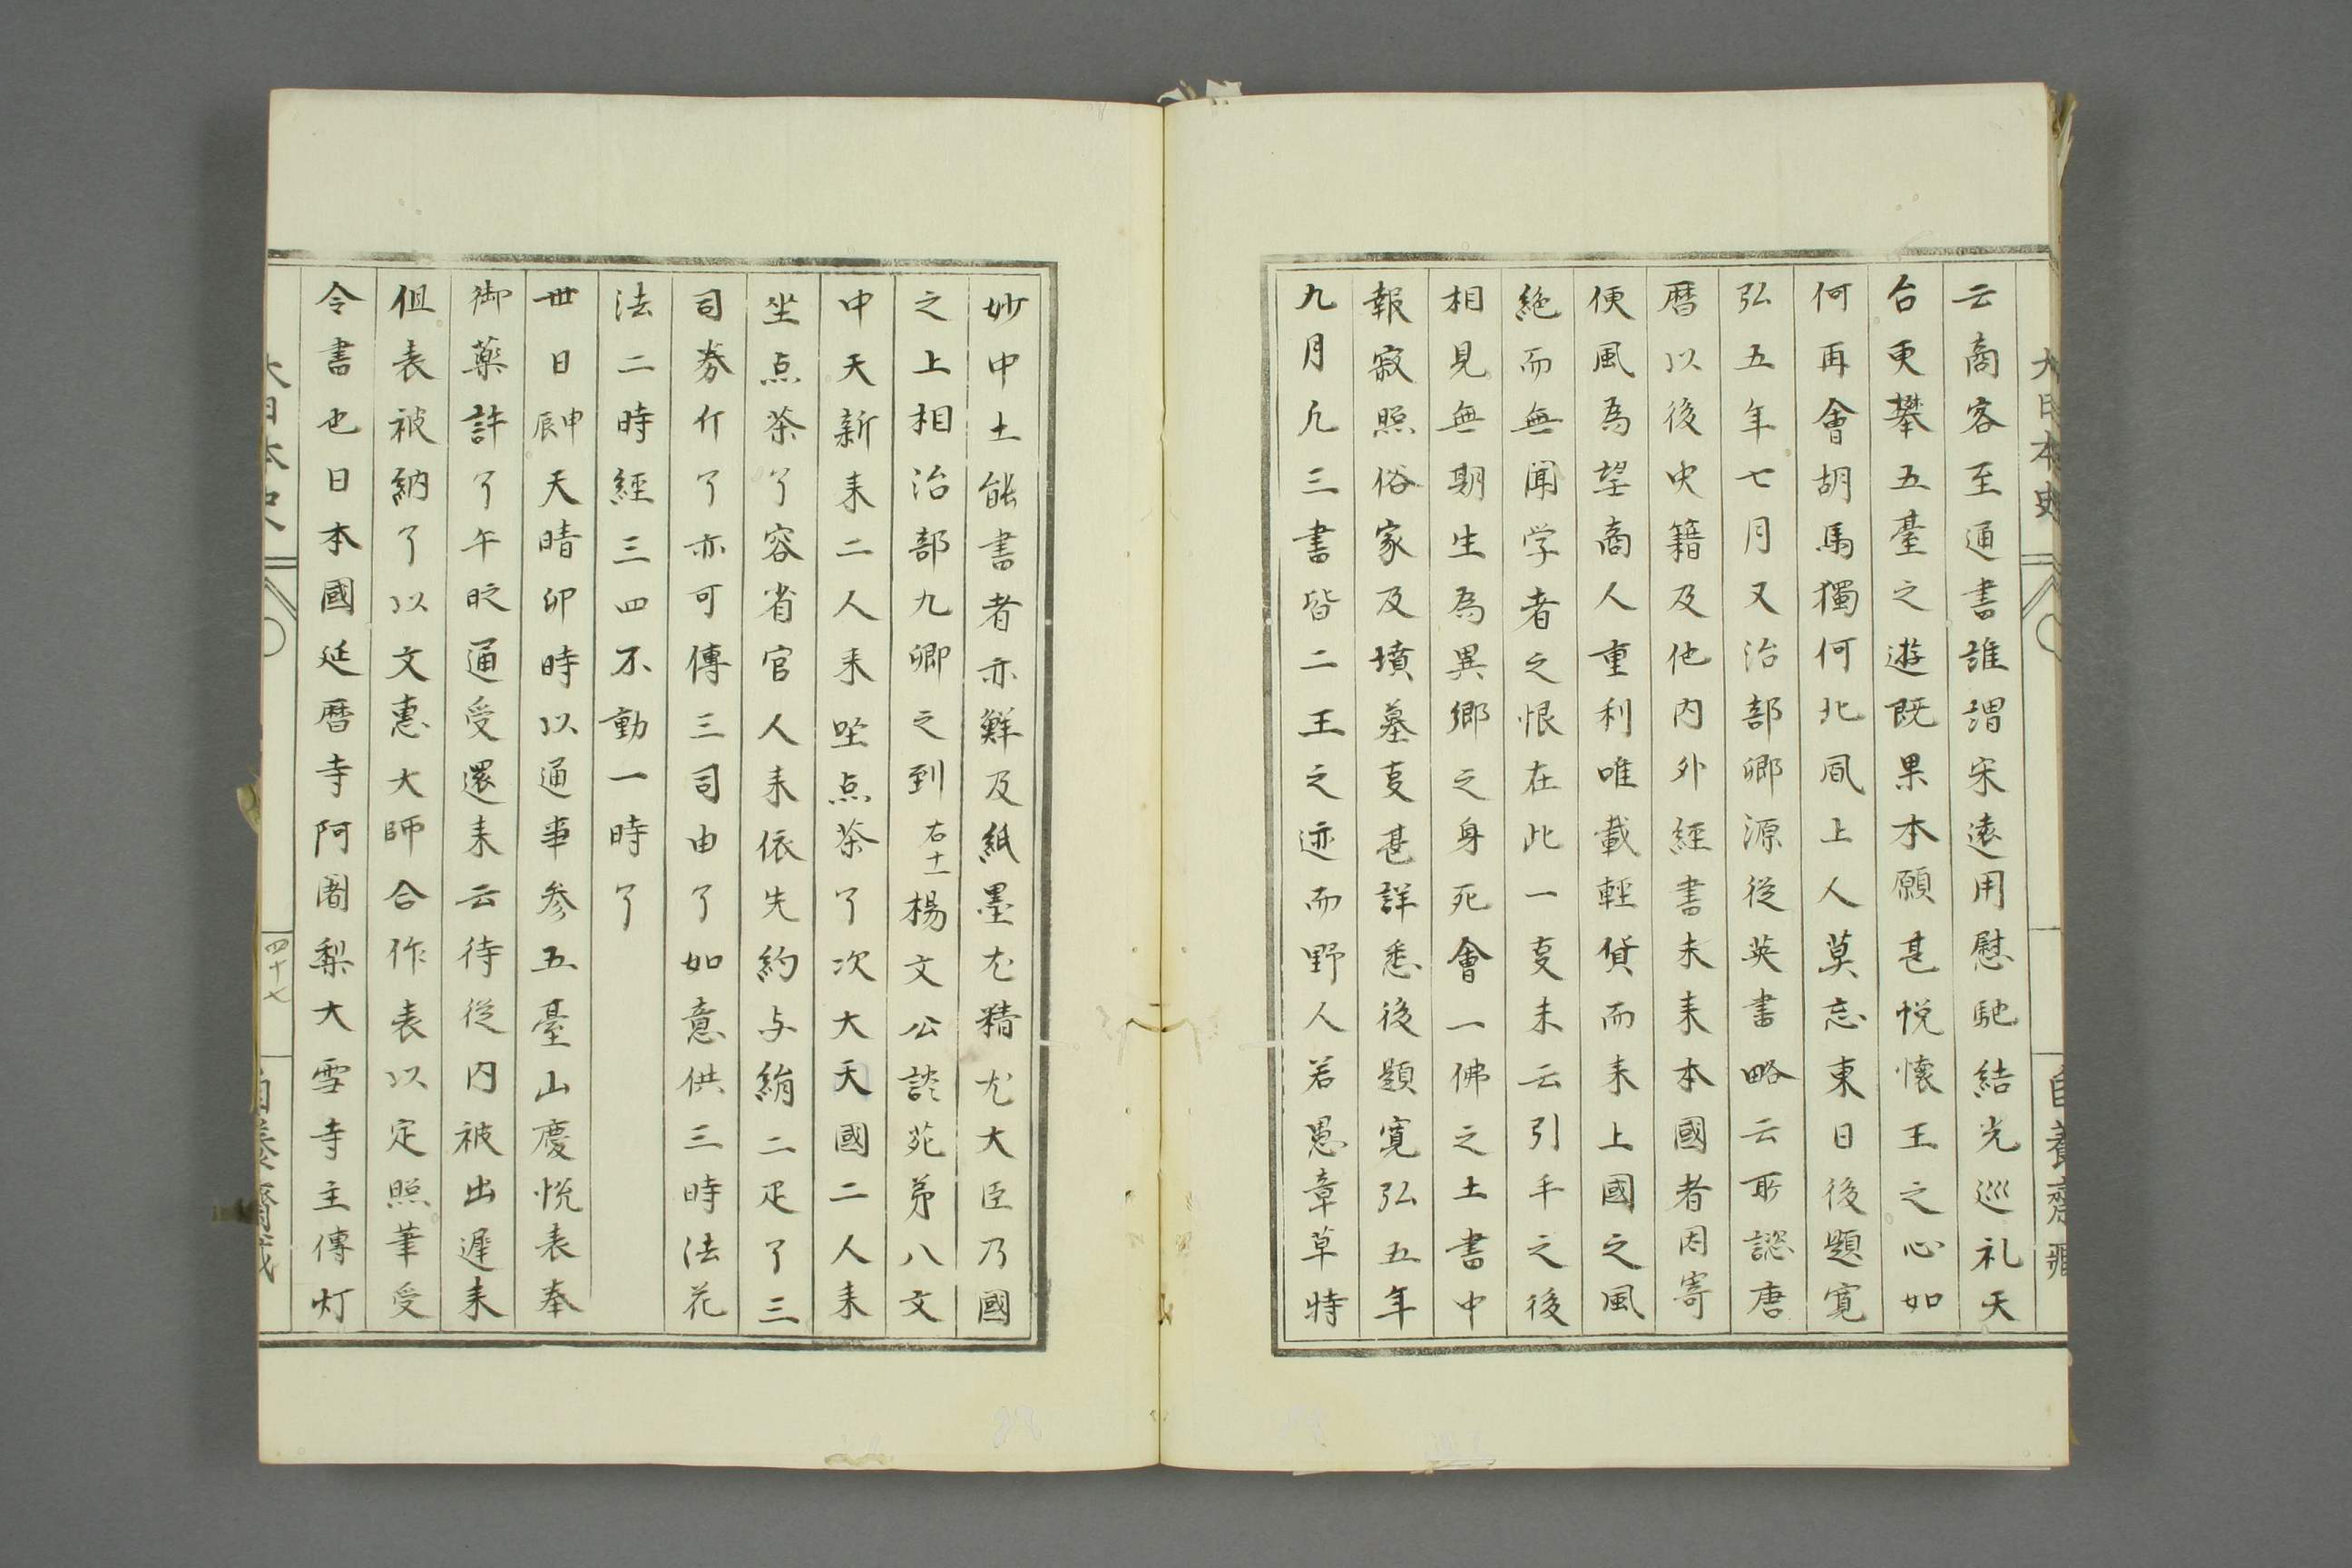 大日本史
云商客至通書誰謂宋遠用慰馳結光巡礼天
台更攀五臺之遊既果本願甚悦懐王之心如
何再會胡馬獨何北風上人莫忘東日後題寛
弘五年七月又治部卿源從英書略云所諮唐
暦以後史籍及他内外經書未耒本國者因寄
便風為望商人重利唯載輕貨而耒上國之風
絶而無聞学者之恨在此一㕝末云引手之後
相見無期生為異郷之身死會一佛之土書中
報寂照俗家及墳墓㕝甚詳悉後題寛弘五年
九月凢三書皆二王之迹而野人若愚章草特
妙中土能書者亦鮮及紙墨尤精尤大臣乃國
之上相治部九卿之到右十一楊文公談苑第八文
中天新耒二人耒坐点茶了次大天國二人耒
坐点茶了容省官人耒依先約与絹二疋了三
司劵斤了亦可傳三司由了如意供三時法花
法二時經三四不動一時了
丗日庚申天晴卯時以通事参五臺山慶悦表奉
御藥許了午時通受還耒云待從内被出遅耒
但表被納了以文惠大師合作表以定照筆受
令書也日本國延暦寺阿闍梨大雲寺主傳灯
大日本史
四十七
自養齋蔵